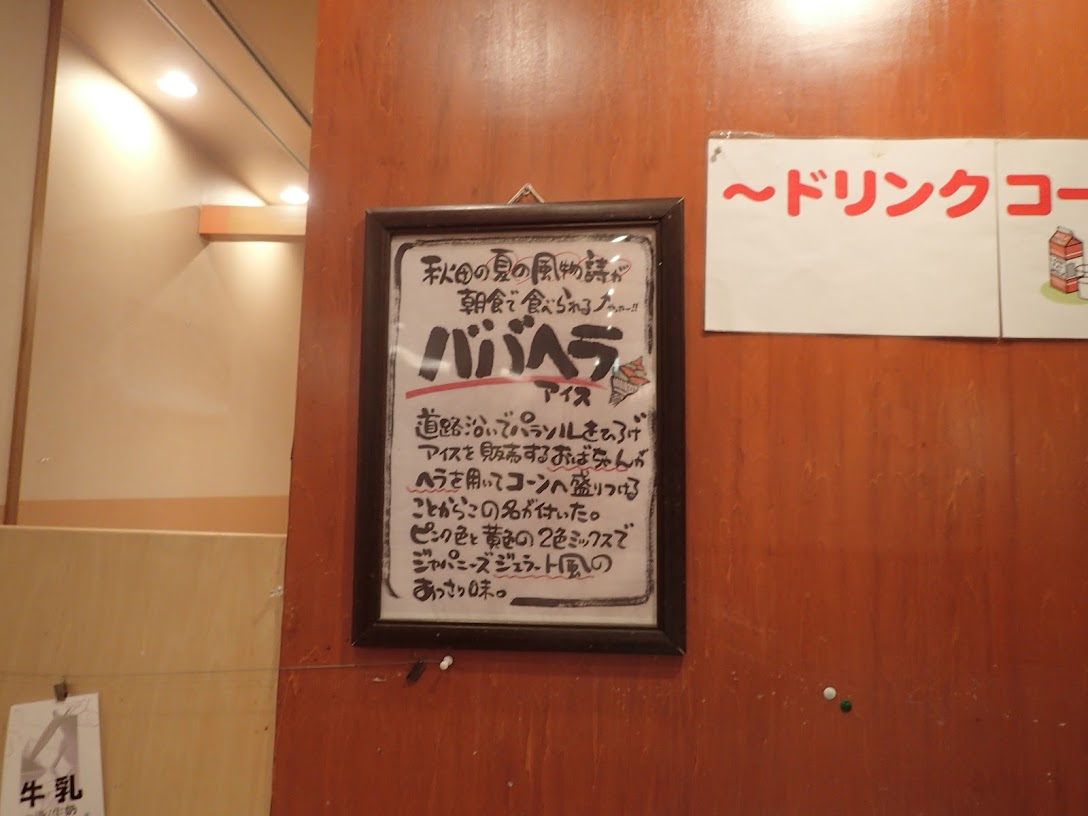 秋田の夏の風物詩が
朝食で食べられる
ババヘラ
アイス
道路沿いでパラソルをひろげ
アイスを販売するおばちゃんが
ヘラを用いてコーンへ盛りつける
ことからこの名が付いた。
ピンク色と黄色の2色ミックスで
ジャパニーズジェラート風の
あっさり味。
〜ドリンクコー
牛乳